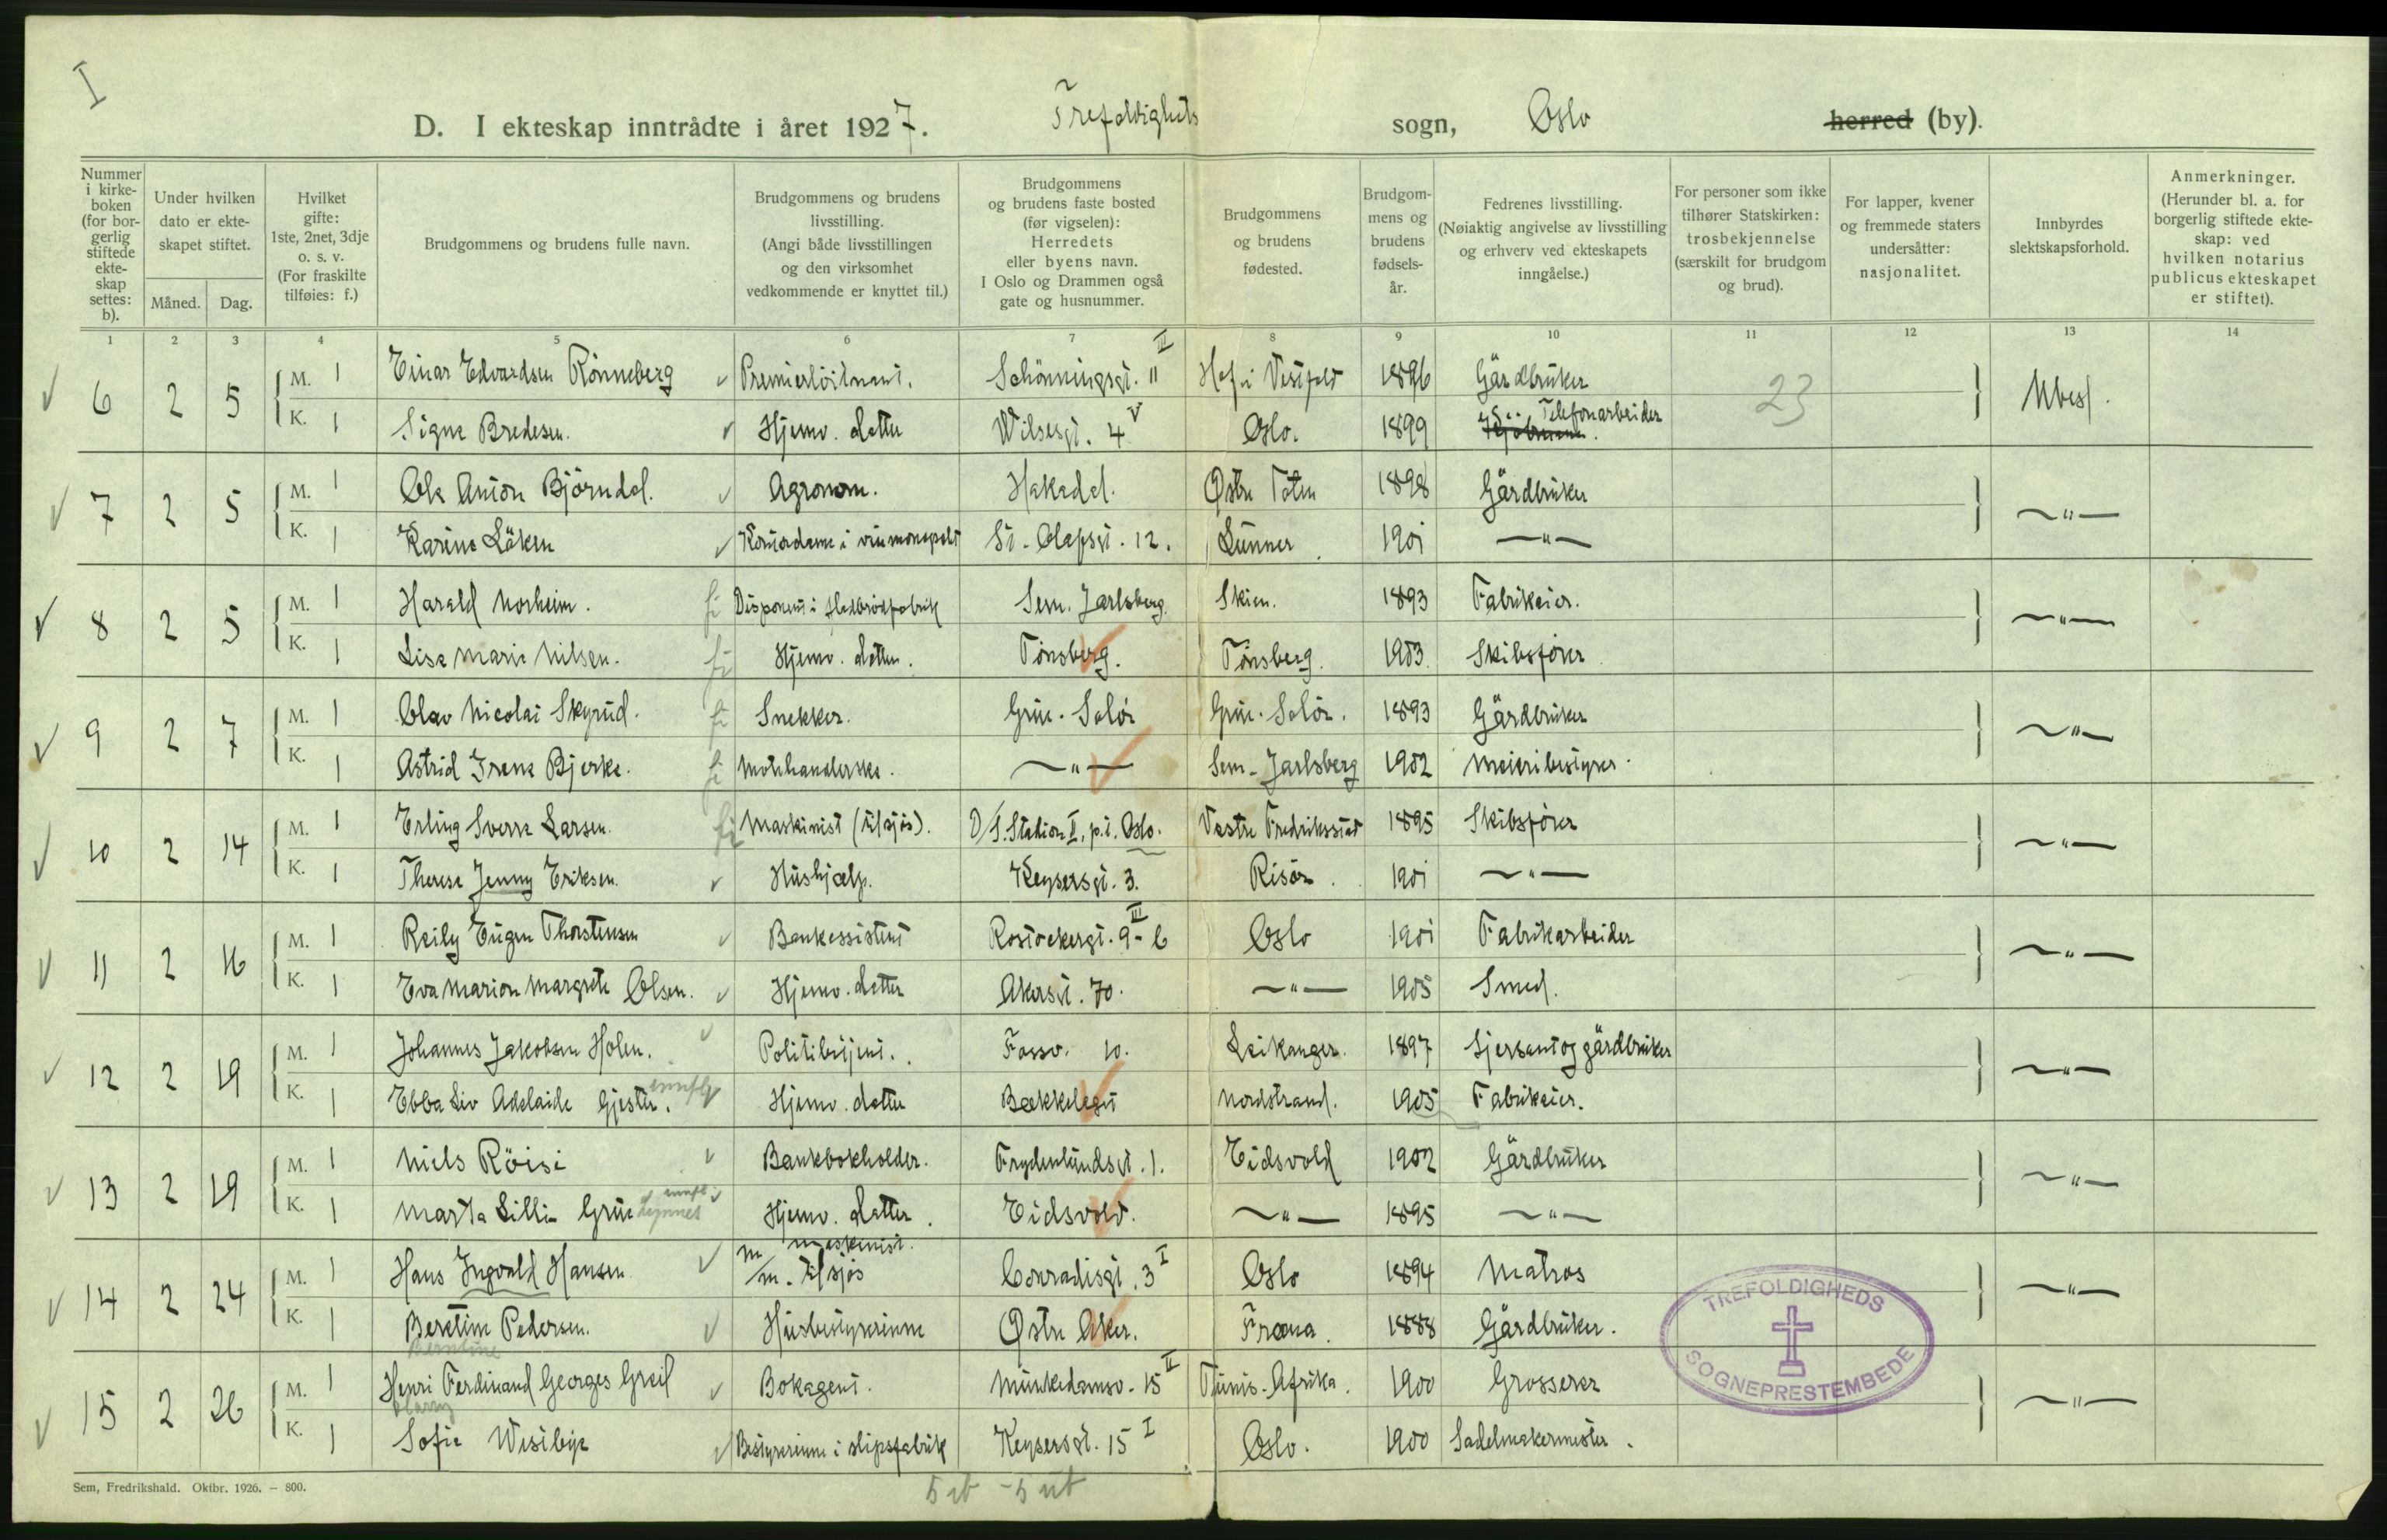 I
D. I ekteskap inntrådte i året 1927. Trefoldighets sogn, Oslo herred (by).
Nummer i kirkeboken (for borgerlig stiftede ekteskap settes: b).
Under hvilken dato er ekteskapet stiftet.
Måned. Dag.
Hvilket gifte: 1ste, 2net, 3dje o. s. v. (For fraskilte tilføies: f.)
Brudgommens og brudens fulle navn.
Brudgommens og brudens livsstilling. (Angi både livsstillingen og den virksomhet vedkommende er knyttet til.)
Brudgommens og brudens faste bosted (før vigselen): Herredets eller byens navn. I Oslo og Drammen også gate og husnummer.
Brudgommens og brudens fødested.
Brudgommens og brudens fødselsår.
Fedrenes livsstilling. (Nøiaktig angivelse av livsstilling og erhverv ved ekteskapets inngåelse.)
For personer som ikke tilhører Statskirken: trosbekjennelse (særskilt for brudgom og brud).
For lapper, kvener og fremmede staters undersåtter: nasjonalitet.
Innbyrdes slektskapsforhold.
Anmerkninger. (Herunder bl. a. for borgerlig stiftede ekteskap: ved hvilken notarius publicus ekteskapet er stiftet).
1 2 3 4 5 6 7 8 9 10 11 12 13 14
6 2 5 M. 1 Einar Edvardsen Rönneberg Premierlöitnant. Schönningsgt. 11 III Hof i Vestfold 1896 Gårdbruker 23 Ubesl.
K. 1 Signe Bredesen. Hjemv. datter Wilsesgt. 4 V Oslo. 1899 Telefonarbeider
7 2 5 M. 1 Ole Anton Björndal. Agronom. Hakadal. Østre Toten 1898 Gårdbruker —"—
K. 1 Karine Löken Kontordame i vinmonopolet St. Olafsgt. 12. Lunner. 1901 —"—
8 2 5 M. 1 Harald Norheim. Disponent i flatbrödfabrik Sem. Jarlsberg. Skien. 1893 Fabrikeier. —"—
K. 1 Lise Marie Nilsen. Hjemv. datter. Tönsberg. Tönsberg. 1903 Skibsförer
9 2 7 M. 1 Olav Nicolai Skyrud. Snekker. Grue. Solör Grue. Solör. 1893 Gårdbruker —"—
K. 1 Astrid Irene Bjerke. Motehandlerske. —"— Sem. Jarlsberg 1902 Meieribestyrer.
10 2 14 M. 1 Erling Sverre Larsen. Maskinist (tilsjös). D/S. Station I, p.t. Oslo. Vestre Fredrikstad 1895 Skibsförer —"—
K. 1 Therese Jenny Eriksen. Hushjælp. Keysersgt. 3. Risör. 1901 —"—
11 2 16 M. 1 Reily Eugen Thorstensen Bankassistent Rostockergt. 9-b III Oslo 1901 Fabrikarbeider —"—
K. 1 Eva Marion Margrete Olsen. Hjemv. datter Akersgt. 70. —"— 1905 Smed.
12 2 19 M. 1 Johannes Jakobsen Holen. Politibetjent. Fossv. 10. Leikanger. 1897 Sjersant og gårdbruker —"—
K. 1 Ebba Liv Adelaide Gjester. Hjemv. datter Bækkelaget Nordstrand. 1905 Fabrikeier.
13 2 19 M. 1 Niels Röisi Bankbokholder. Frydenlundsgt. 1. Eidsvold 1902 Gårdbruker —"—
K. 1 Marta Lilli Grue Hjemv. datter. Eidsvold. —"— 1895 —"—
14 2 24 M. 1 Hans Ingvald Hansen maskinist. m/m. tilsjös Conradisgt. 3 I Oslo 1894 Matros —"—
K. 1 Beretine Pedersen. Husbestyrerinne Østre Aker. Fræna. 1888 Gårdbruker.
Berntine
15 2 26 M. 1 Henri Ferdinand Georges Greil Bokagent. Munkedamsv. 15 II Tunis. Afrika. 1900 Grosserer —"—
Harry
K. 1 Sofie Westbye Bestyrerinne i slipsfabrik Keysersgt. 15 I Oslo. 1900 Sadelmakermester.
TREFOLDIGHEDS SOGNEPRESTEMBEDE
Sem, Fredrikshald. Oktbr. 1926. – 800.